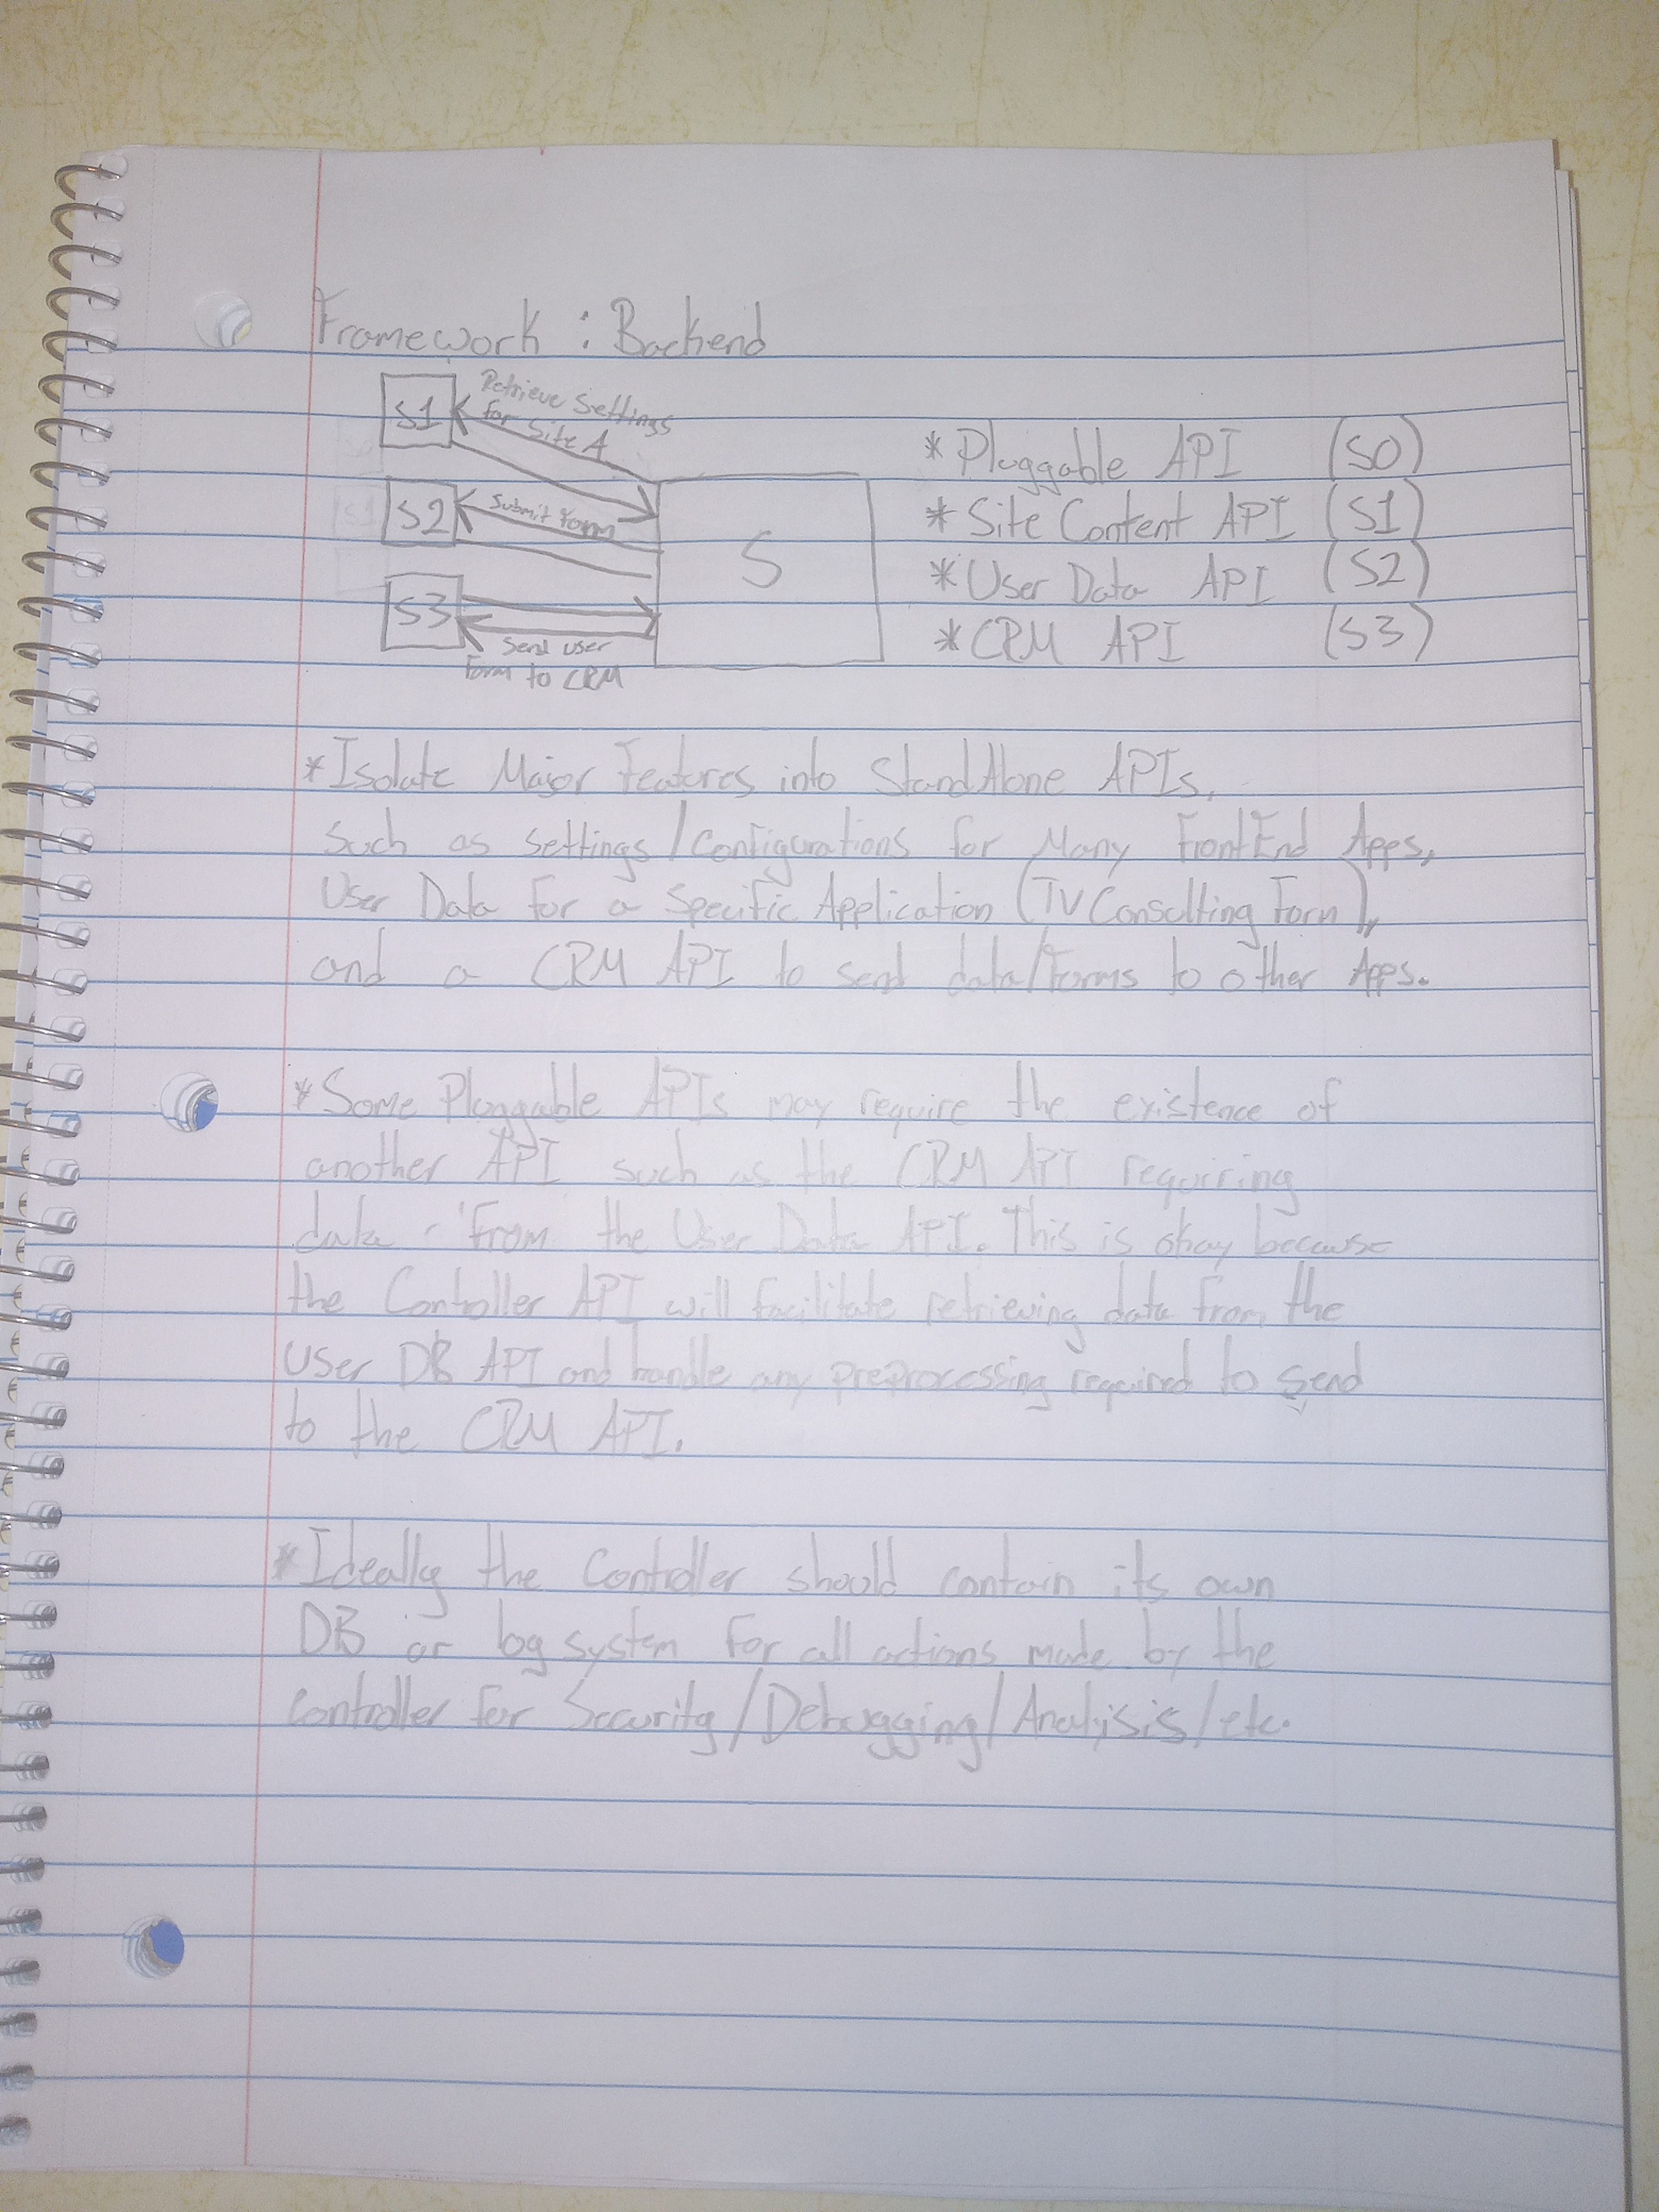 Framework : Backend
S1
Retrieve Settings
for Site A
S2
Submit Form
S3
Send user
Form to CRM
S
* Pluggable API (S0)
* Site Content API (S1)
* User Data API (S2)
* CRM API (S3)
* Isolate Major Features into StandAlone APIs,
Such as settings/configurations for Many FrontEnd Apps,
User Data For a Specific Application (TV Consulting Form),
and a CRM API to send data/forms to other Apps.
* Some Pluggable APIs may require the existence of
another API such as the CRM API requiring
data From the User Data API. This is okay because
the Controller API will facilitate retrieving data from the
User DB API and handle any preprocessing required to send
to the CRM API.
* Ideally the Controller should contain its own
DB or log system For all actions made by the
Controller for Security/Debugging/Analysis/etc.